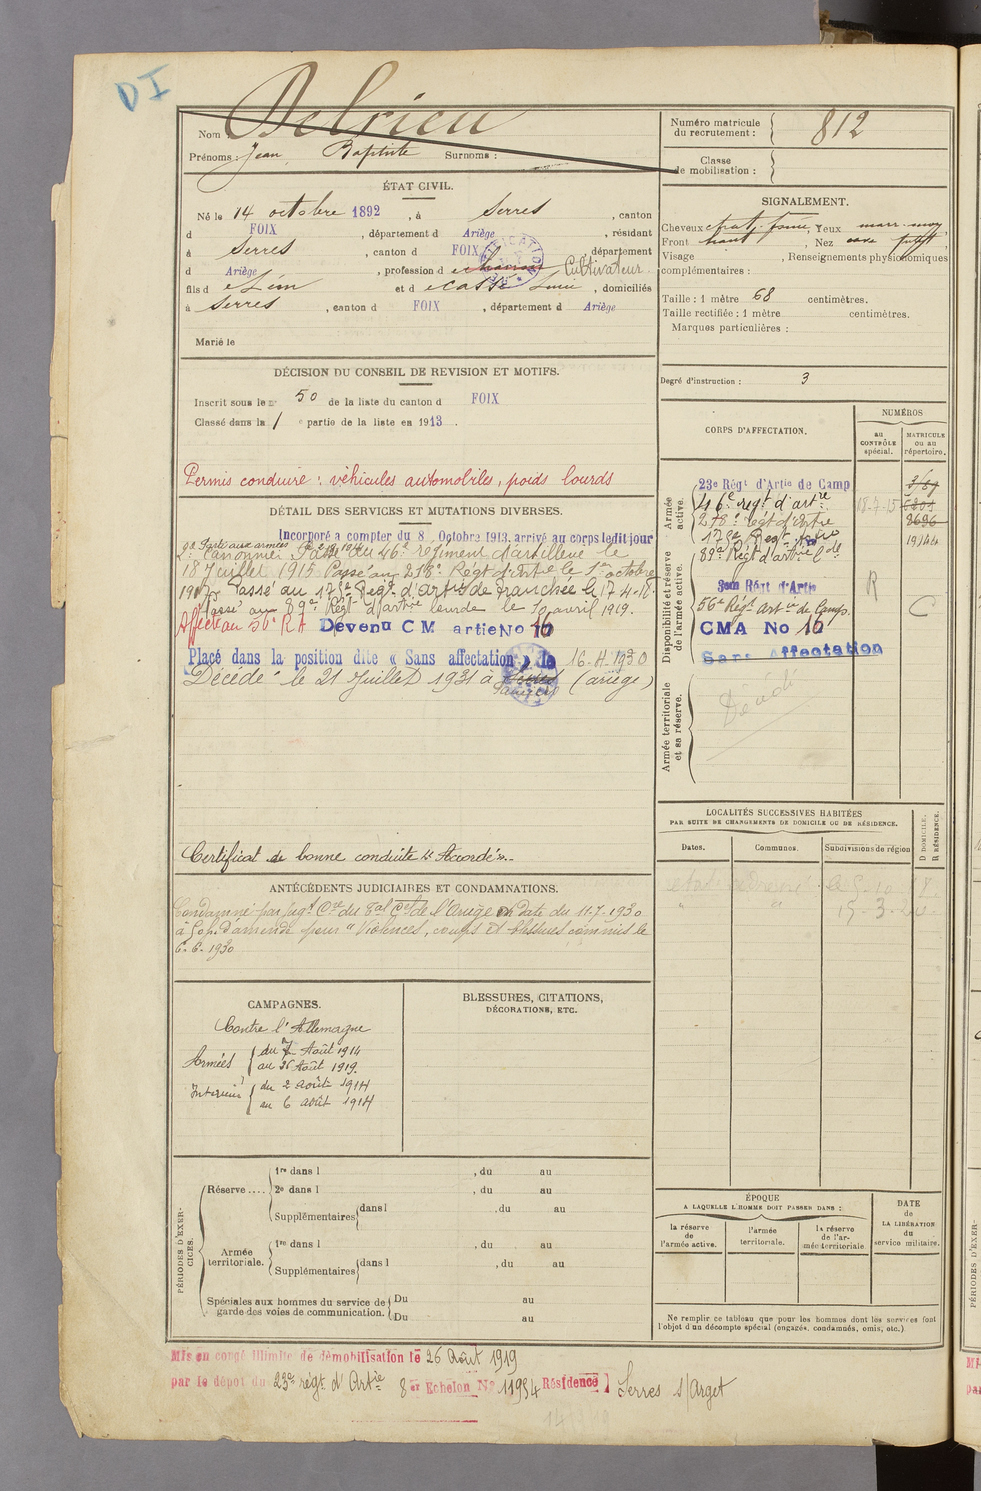 DI
Nom : Delrieu
Prénoms : Jean Baptiste Surnoms :
Numéro matricule du recrutement : 812
Classe de mobilisation :
ÉTAT CIVIL.
Né le 14 octobre 1892, à Serres, canton
d FOIX, département d Ariège, résidant
à Serres, canton d FOIX, département
d Ariège, profession d Cultivateur
fils d et d , domiciliés
à Serres, canton d FOIX, département d Ariège
Marié le
SIGNALEMENT.
Cheveux chat. foncé, Yeux marr.
Front haut, Nez cave
Visage , Renseignements physionomiques
complémentaires :
Taille : 1 mètre 68 centimètres.
Taille rectifiée : 1 mètre centimètres.
Marques particulières :
Degré d'instruction : 3
DÉCISION DU CONSEIL DE REVISION ET MOTIFS.
Inscrit sous le n° 50 de la liste du canton d FOIX
Classé dans la 1 e partie de la liste en 1913.
Permis conduire : véhicules automobiles, poids lourds
DÉTAIL DES SERVICES ET MUTATIONS DIVERSES.
Incorporé à compter du 8 Octobre 1913. arrivé au corps ledit jour
2e Canonnier. Passé au 46e régiment d'artillerie le
18 Juillet 1915 Passé au 278e Régt d'Artie le 1er octobre
1917 Passé au 178e Régt d'Artie de tranchée le 17.4.18.
Passé au 89e Régt d'artie lourde le 10 avril 1919.
Affecté au 56e RA Devenu CM artie No 16
Placé dans la position dite « Sans affectation » le 16.4.1930
Décédé le 21 Juillet 1931 à Pamiers (ariège)
Certificat de bonne conduite "Accordé".
CORPS D'AFFECTATION.
NUMÉROS
au CONTRÔLE spécial.
MATRICULE ou au répertoire.
Armée active.
23e Régt d'Artie de Camp
46e regt d'artre 18.7.15
278e régt d'Artre 8696
178e Regt 19144
89e Régt d'artre lde
Disponibilité et réserve de l'armée active.
R
56e Régt Artie de Camp. C
CMA No 16
Sans Affectation
Armée territoriale et sa réserve.
Décédé
LOCALITÉS SUCCESSIVES HABITÉES
PAR SUITE DE CHANGEMENTS DE DOMICILE OU DE RÉSIDENCE.
Dates. Communes. Subdivisions de région D DOMICILE. R RÉSIDENCE.
15-3-20
ANTÉCÉDENTS JUDICIAIRES ET CONDAMNATIONS.
Condamné par jugt Cre du Bal Cel de l'Ariège en date du 11-7-1930
à 50f. d'amende pour "Violences, coups et blessures commis le
6-6-1930
CAMPAGNES.
Contre l'Allemagne
Armées du 7 Août 1914
au 25 Août 1919.
Intérieur du 2 août 1914
au 6 août 1914
BLESSURES, CITATIONS,
DÉCORATIONS, ETC.
PÉRIODES D'EXERCICES.
Réserve.... 1re dans l , du au
2e dans l , du au
Supplémentaires dans l , du au
Armée territoriale. 1re dans l , du au
Supplémentaires dans l , du au
Spéciales aux hommes du service de garde des voies de communication. Du au
Du au
ÉPOQUE
A LAQUELLE L'HOMME DOIT PASSER DANS :
la réserve de l'armée active. l'armée territoriale. la réserve de l'armée territoriale.
DATE de LA LIBÉRATION du service militaire.
Ne remplir ce tableau que pour les hommes dont les services font
l'objet d'un décompte spécial (engagés, condamnés, omis, etc.)
Mis en congé illimité de démobilisation le 26 Août 1919
par le dépôt du 23e régt d'Artie 8 er Echelon No 11954 Résidence Serres s/Arget